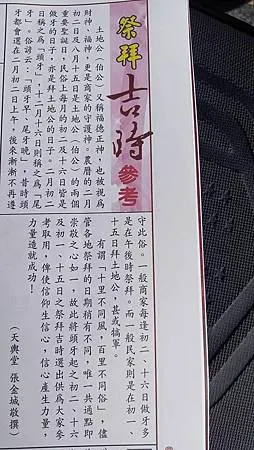 祭拜吉時參考
土地公(伯公)又稱福德正神,也被視為
財神、福神,更是商家的守護神。農曆的二月
初二日及八月十五日是土地公(伯公)的兩個
重要聖誕日,民俗上每月的初二及十六日皆是
做牙的日子,亦是拜土地公的日子。二月初二
日稱之為「頭牙」,十二月十六日則稱之為「尾
牙」。俗諺云:「頭牙早、尾牙晚」,昔時頭
牙都會選在二月初二日上午,後來漸漸不再遵
守此俗。一般商家每逢初二、十六日做牙多
是在午後時祭拜。而一般民家則是在初一、
十五日拜土地公,甚或犒軍。
有謂「十里不同風,百里不同俗」,儘
管各地祭拜的日期稍有不同,唯一共通點即
崇敬之心如一,故此將頭牙起之初二、十六
及初一、十五日之祭拜吉時選出供為大家參
考取用,俾使信仰生信心,信心產生力量,
力量造就成功!
(天與堂 張金城敬撰)